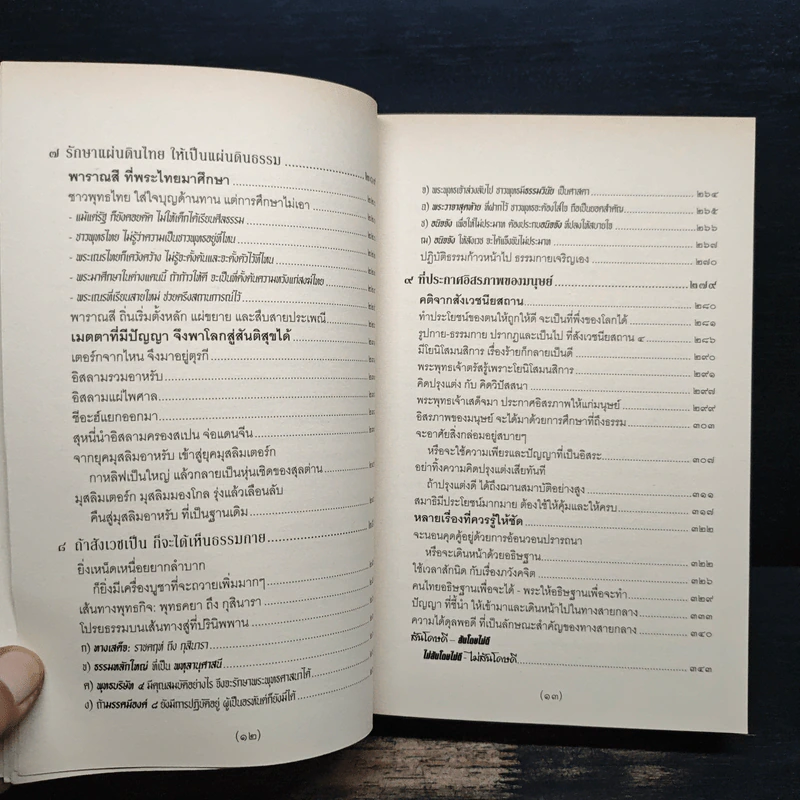 ๗ รักษาแผ่นดินไทย ให้เป็นแผ่นดินธรรม
พาราณสี ที่พระไทยมาศึกษา
ชาวพุทธไทย ใส่ใจบุญด้านทาน แต่การศึกษาไม่เอา
- แม้แต่รัฐ ก็ยังคอยคัด ไม่ให้เด็กได้เรียนศีลธรรม
- ชาวพุทธไทย ไม่รู้ว่าความเป็นชาวพุทธอยู่ที่ไหน
- พระเณรไทยก็เคว้งคว้าง ไม่รู้จะตั้งต้น และตั้งตัวไว้ที่ไหน
- พระมาศึกษาในต่างแดนนี้ ถ้าก้าวให้ดี จะเป็นที่ตั้งต้นความหวังแก่สงฆ์ไทย
- พระเณรที่เรียนสายใหม่ ช่วยตรึงสถานการณ์ไว้
พาราณสี ถิ่นเริ่มตั้งหลัก แผ่ขยาย และสืบสายประเพณี
เมตตาที่มีปัญญา จึงพาโลกสู่สันติสุขได้
เตอร์กจากไหน จึงมาอยู่ตุรกี
อิสลามรวมอาหรับ
อิสลามแผ่ไพศาล
ชีอะฮ์แยกออกมา
สุหนี่นำอิสลามครองสเปน จ่อแดนจีน
จากยุคมุสลิมอาหรับ เข้าสู่ยุคมุสลิมเตอร์ก
กาหลิฟเป็นใหญ่ แล้วกลายเป็นหุ่นเชิดของสุลต่าน
มุสลิมเตอร์ก มุสลิมมองโกล รุ่งแล้วเลือนลับ
คืนสู่มุสลิมอาหรับ ที่เป็นฐานเดิม
๘ ถ้าสังเวชเป็น ก็จะได้เห็นธรรมกาย
ยิ่งเหน็ดเหนื่อยยากลำบาก
ก็ยิ่งมีเครื่องบูชาที่จะถวายเพิ่มมากๆ
เส้นทางพุทธกิจ: พุทธคยา ถึง กุสินารา
โปรยธรรมบนเส้นทางสู่ที่ปรินิพพาน
ก) ทางเสด็จ: ราชคฤห์ ถึง กุสินารา
ข) ธรรมหลักใหญ่ ที่เป็น พหุลานุศาสนี
ค) พุทธบริษัท ๔ มีคุณสมบัติอย่างไร จึงจะรักษาพระพุทธศาสนาได้
ง) ถ้ามรรคมีองค์ ๘ ยังมีการปฏิบัติอยู่ ผู้เป็นอรหันต์ก็ยังมีได้
(๑๒)
จ) พระพุทธเจ้าล่วงลับไป ชาวพุทธมีธรรมวินัย เป็นศาสดา ๒๖๔
ฉ) พระวาจาสุดท้าย ที่ฝากไว้ ชาวพุทธจะต้องใส่ใจ ถือเป็นยอดสำคัญ ๒๖๕
ช) อนิจจัง เพื่อให้ไม่ประมาท ต้องประกบอนิจจัง ที่ปลงให้สบายใจ ๒๖๖
ฌ) อนิจจัง ให้สังเวช จะได้แข็งขันไม่ประมาท ๒๖๗
ปฏิบัติธรรมก้าวหน้าไป ธรรมกายเจริญเอง ๒๗๐
๙ ที่ประกาศอิสรภาพของมนุษย์ ๒๗๙
คติจากสังเวชนียสถาน ๒๘๐
ทำประโยชน์ของตนให้ถูกให้ดี จะเป็นที่พึ่งของโลกได้ ๒๘๑
รูปกาย-ธรรมกาย ปรากฏและเป็นไป ที่สังเวชนียสถาน ๔ ๒๘๖
มีโยนิโสมนสิการ เรื่องร้ายก็กลายเป็นดี ๒๙๐
พระพุทธเจ้าตรัสรู้เพราะโยนิโสมนสิการ ๒๙๑
คิดปรุงแต่ง กับ คิดวิปัสสนา ๒๙๗
พระพุทธเจ้าเสด็จมา ประกาศอิสรภาพให้แก่มนุษย์ ๒๙๙
อิสรภาพของมนุษย์ จะได้มาด้วยการศึกษาที่ถึงธรรม ๓๐๓
จะอาศัยสิ่งกล่อมอยู่สบายๆ
หรือจะใช้ความเพียรและปัญญาที่เป็นอิสระ ๓๐๗
อย่าทิ้งความคิดปรุงแต่งเสียทันที
ถ้าปรุงแต่งดี ได้ถึงฌานสมาบัติอย่างสูง ๓๑๑
สมาธิมีประโยชน์มากมาย ต้องใช้ให้คุ้มและให้ครบ ๓๑๗
หลายเรื่องที่ควรรู้ให้ชัด ๓๒๒
จะนอนคุดคู้อยู่ด้วยการอ้อนวอนปรารถนา
หรือจะเดินหน้าด้วยอธิษฐาน ๓๒๒
ใช้เวลาสักนิด กับเรื่องภวังคจิต ๓๒๖
คนไทยอธิษฐานเพื่อจะได้ - พระให้อธิษฐานเพื่อจะทำ ๓๒๙
ปัญญา ที่ชี้นำ ให้เข้ามาและเดินหน้าไปในทางสายกลาง
ความได้ดุลพอดี ที่เป็นลักษณะสำคัญของทางสายกลาง ๓๔๐
สันโดษดี – สันโดษไม่ดี
ไม่สันโดษไม่ดี - ไม่สันโดษดี ๓๔๓
(๑๓)